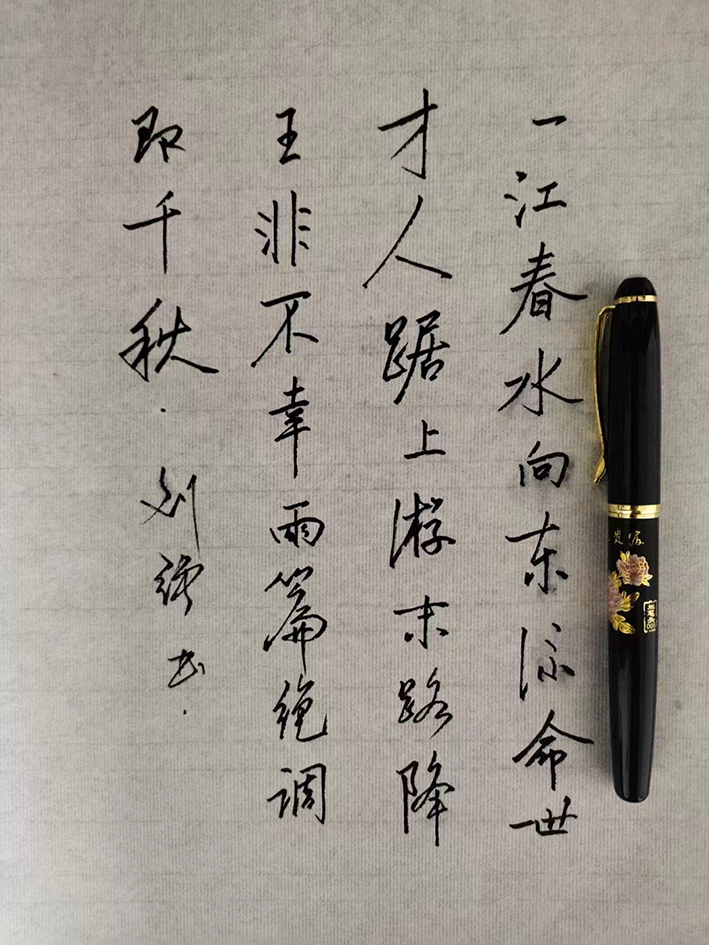 一江春水向东流命世
才人踞上游末路降
王非不幸两篇绝调
即千秋
刘
书